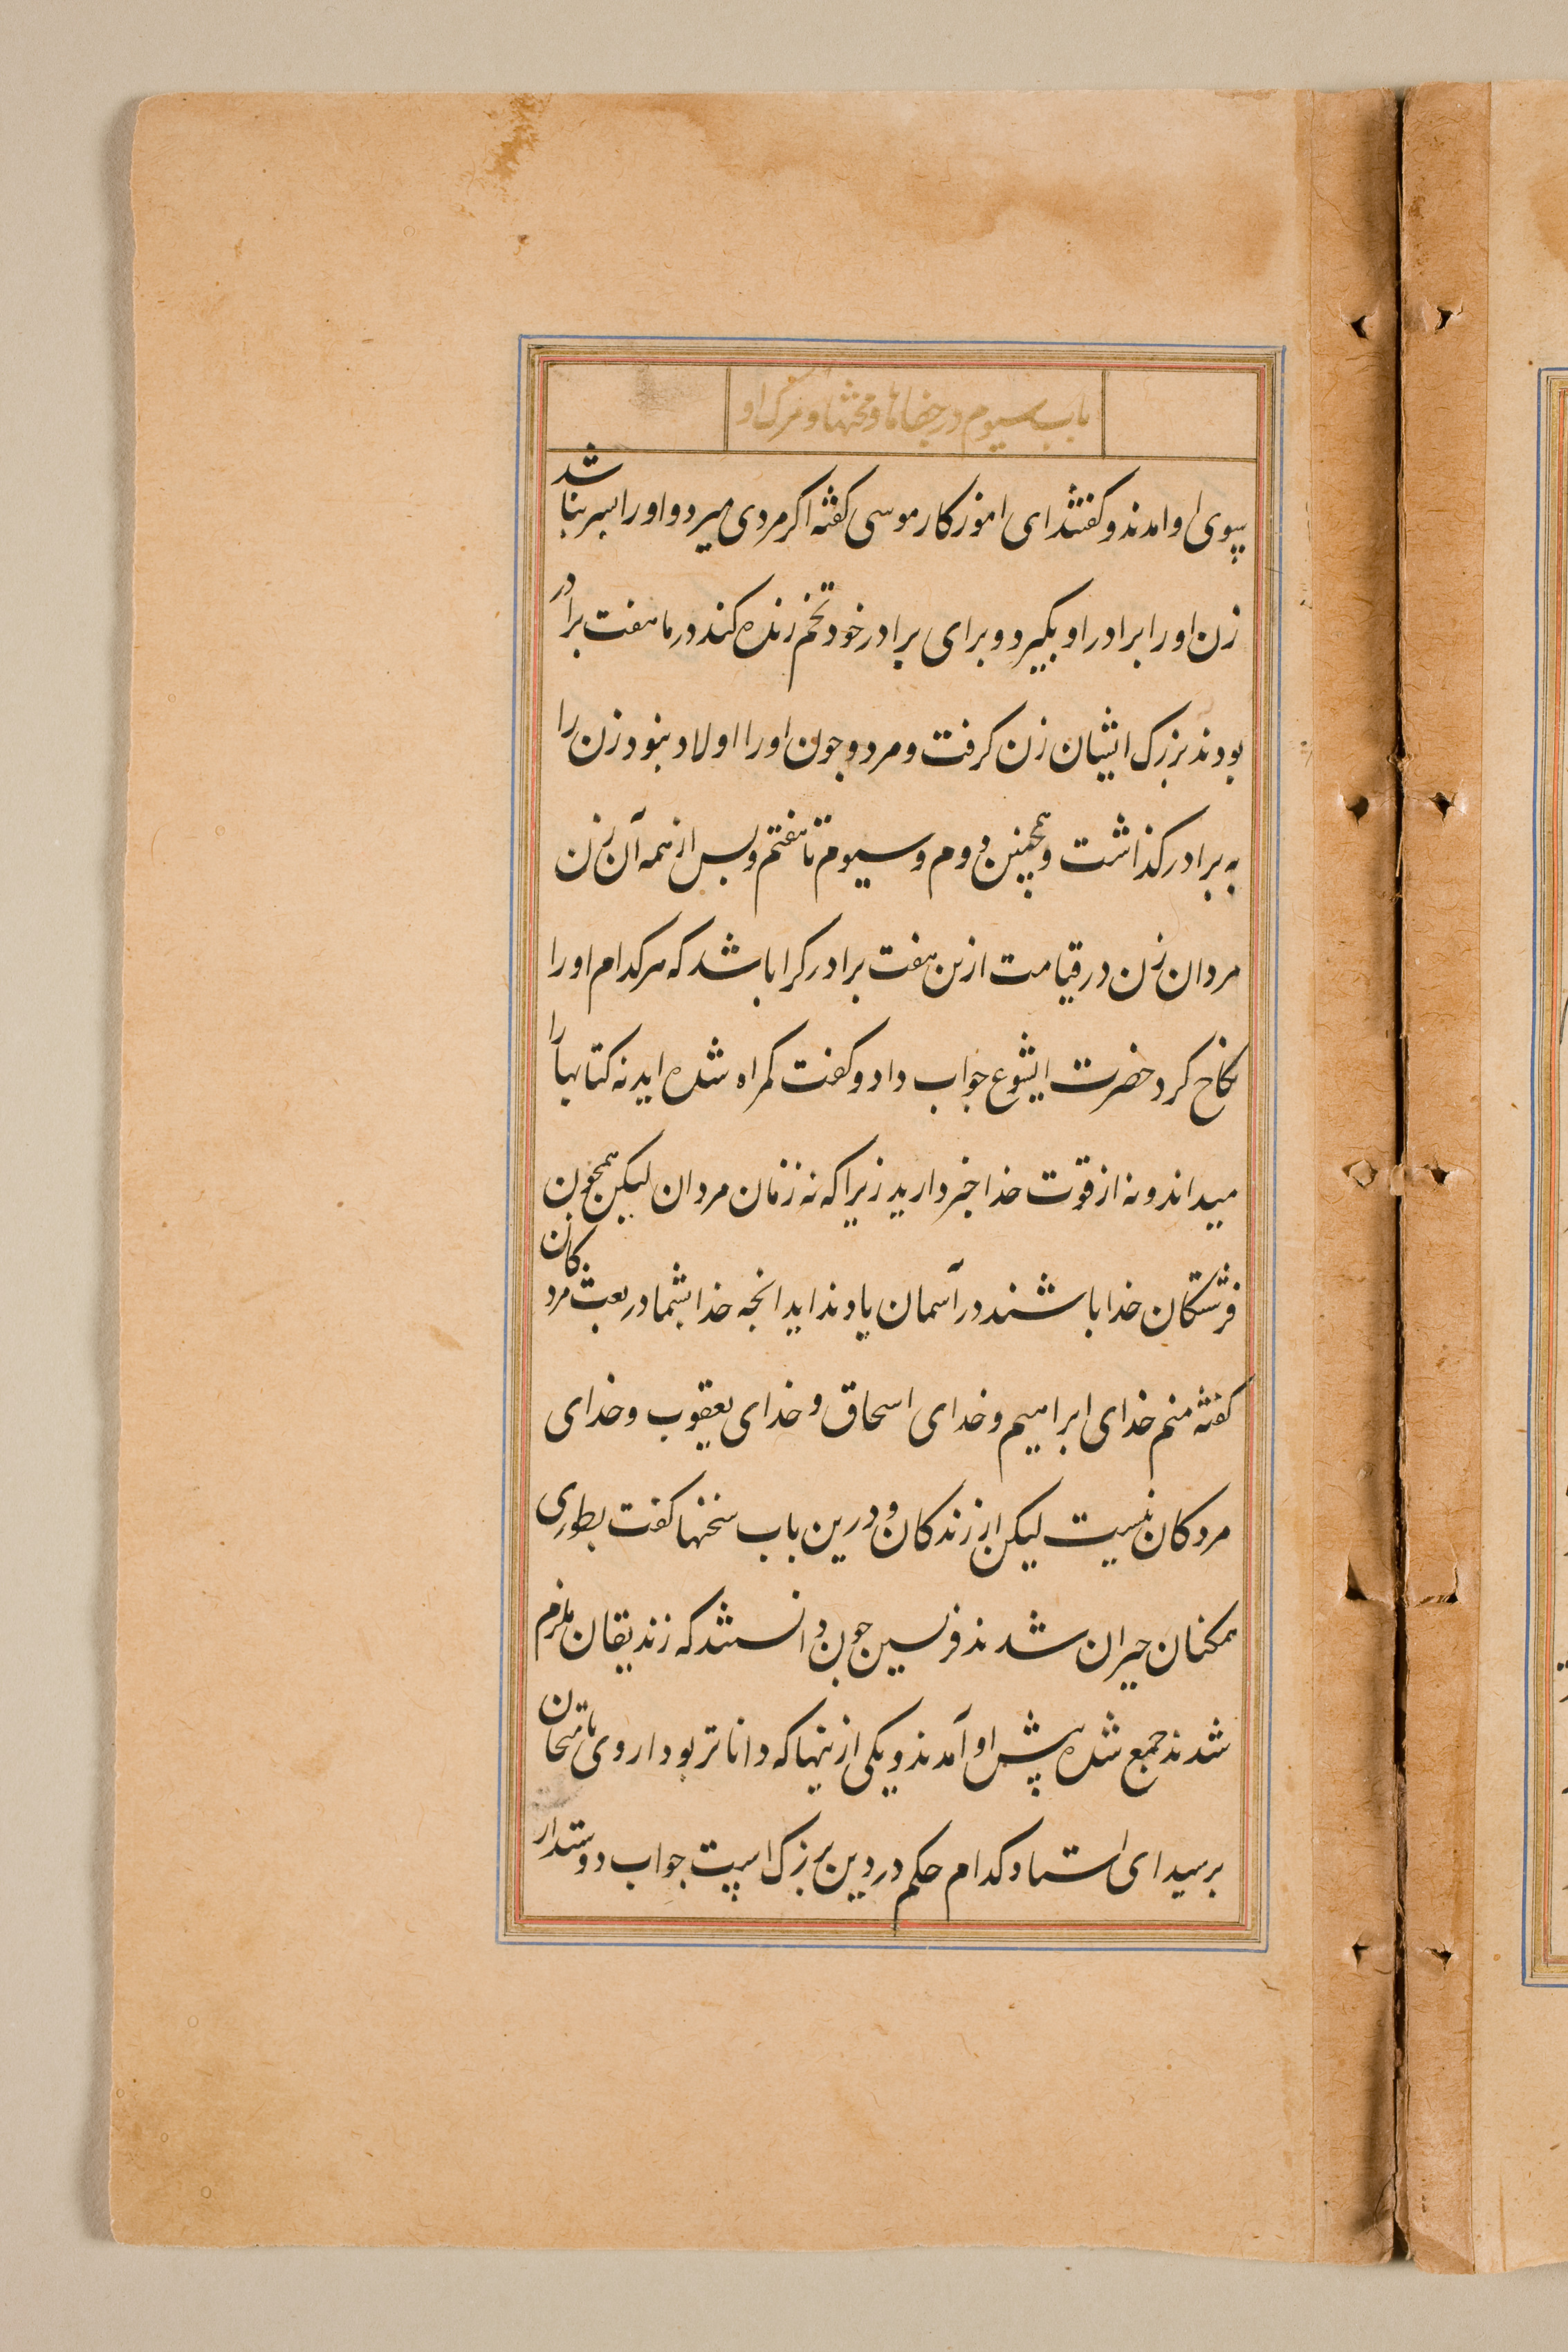 باب سیوم در جفاها و محنتها و مرک او
بسوی او امدند و کفتند ای اموزکار موسی کفته اکر مردی میرد و او را بسر نباشد
زن او را برادر او بکیرد و برای برادر خود تخم زنده کند در ما هفت برادر
بودند بزرک ایشان زن کرفت و مرد و جون او را اولاد نبود زن را
به برادر کذاشت و همچنین دوم و سیوم تا هفتم و بس از همه آن زن
مرد ان زن در قیامت ازین هفت برادر کرا باشد که هر کدام او را
نکاح کرد حضرت ایشوع جواب داد و کفت کمراه شده اید نه کتابها را
میداند و نه از قوت خدا خبر دارید زیرا که نه زنان مردان لیکن همچون
فرشتکان خدا باشند در آسمان یاد ندارید انجه خدا بشما در بعث مردکان
کفته منم خدای ابراهیم و خدای اسحاق و خدای یعقوب و خدای
مردکان نیست لیکن از زندکان و درین باب سخنها کفت بطوری
همکنان حیران شدند فریسین جون دانستند که زندیقان ملزم
شدند جمع شده پیش او آمدند و یکی ازینها که داناتر بود از وی بامتحان
برسید ای استاد کدام حکم در دین بزرک است جواب دوستدار